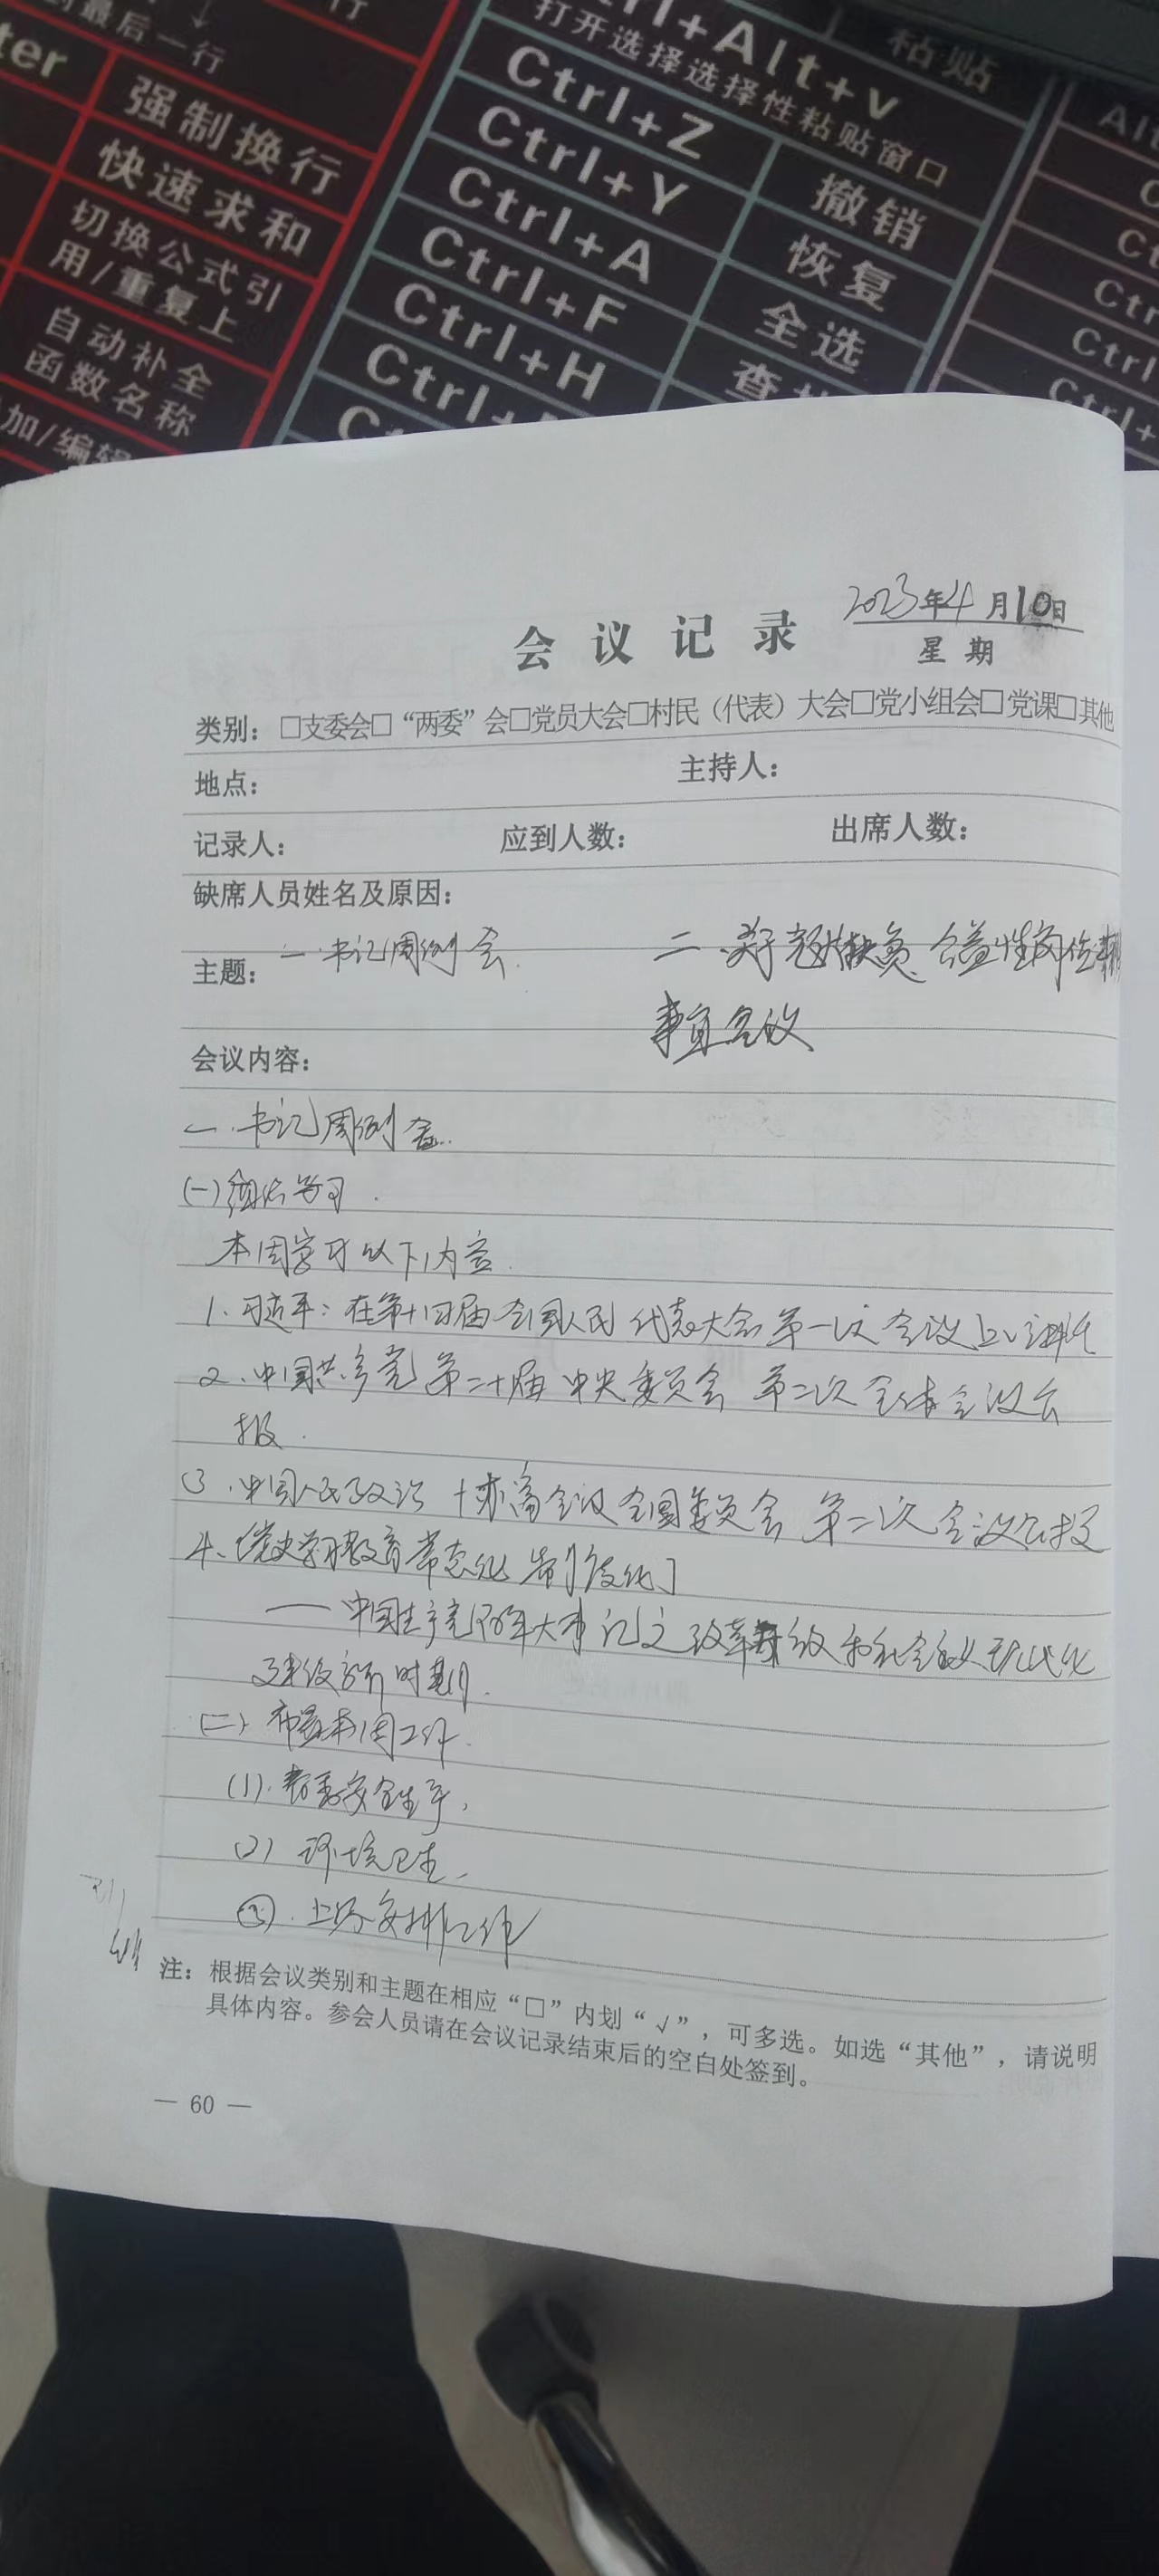 行
↓
到最后一行
ter
强制换行
快速求和
切换公式引
用/重复上
自动补全
函数名称
加/编辑
Ctrl+Alt+V
打开选择选择性粘贴窗口
粘贴
Ctrl+Z
撤销
Ctrl+Y
恢复
Ctrl+A
全选
Ctrl+F
查找
Ctrl+H
Ctrl+
Alt
Ct
Ctr
Ctrl
Ctrl+
2023年4月10日
会议记录
星期
类别：□支委会□“两委”会□党员大会□村民（代表）大会□党小组会□党课□其他
地点： 主持人：
记录人： 应到人数： 出席人数：
缺席人员姓名及原因：
主题： 一.书记周例会. 二、关于 公益性岗位
事宜会议
会议内容：
一.书记周例会.
(一)组织学习.
本周学习以下内容.
1.习近平：在第十四届全国人民代表大会第一次会议上讲话
2.中国共产党第二十届中央委员会第二次全体会议公
报.
3.中国人民政治协商会议全国委员会第二次会议公报
4、党史学习教育常态化制度化
—中国共产党 年大事记之改革 和社会主义现代化
建设新时期.
(二)布置本周工作.
(1). 安全生产,
(2) 环境卫生.
(3). 上级安排工作
注：根据会议类别和主题在相应“□”内划“√”，可多选。如选“其他”，请说明
具体内容。参会人员请在会议记录结束后的空白处签到。
— 60 —